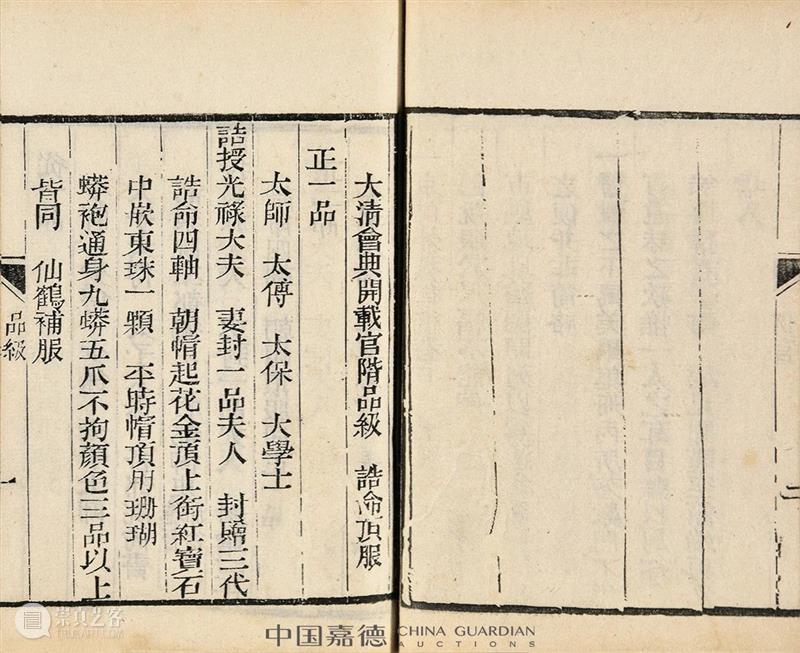 大清會典開載官階品級　誥命頂服
正一品
太師　太傅　太保　大學士
誥授光祿大夫　妻封一品夫人　封贈三代
誥命四軸　朝帽起花金頂上銜紅寶石
中嵌東珠一顆　平時帽頂用珊瑚
蟒袍通身九蟒五爪不拘顏色三品以上
皆同　仙鶴補服
品級
一
二
崇真艺客
TRUEART.COM
中国嘉德
CHINA GUARDIAN
AUCTIONS